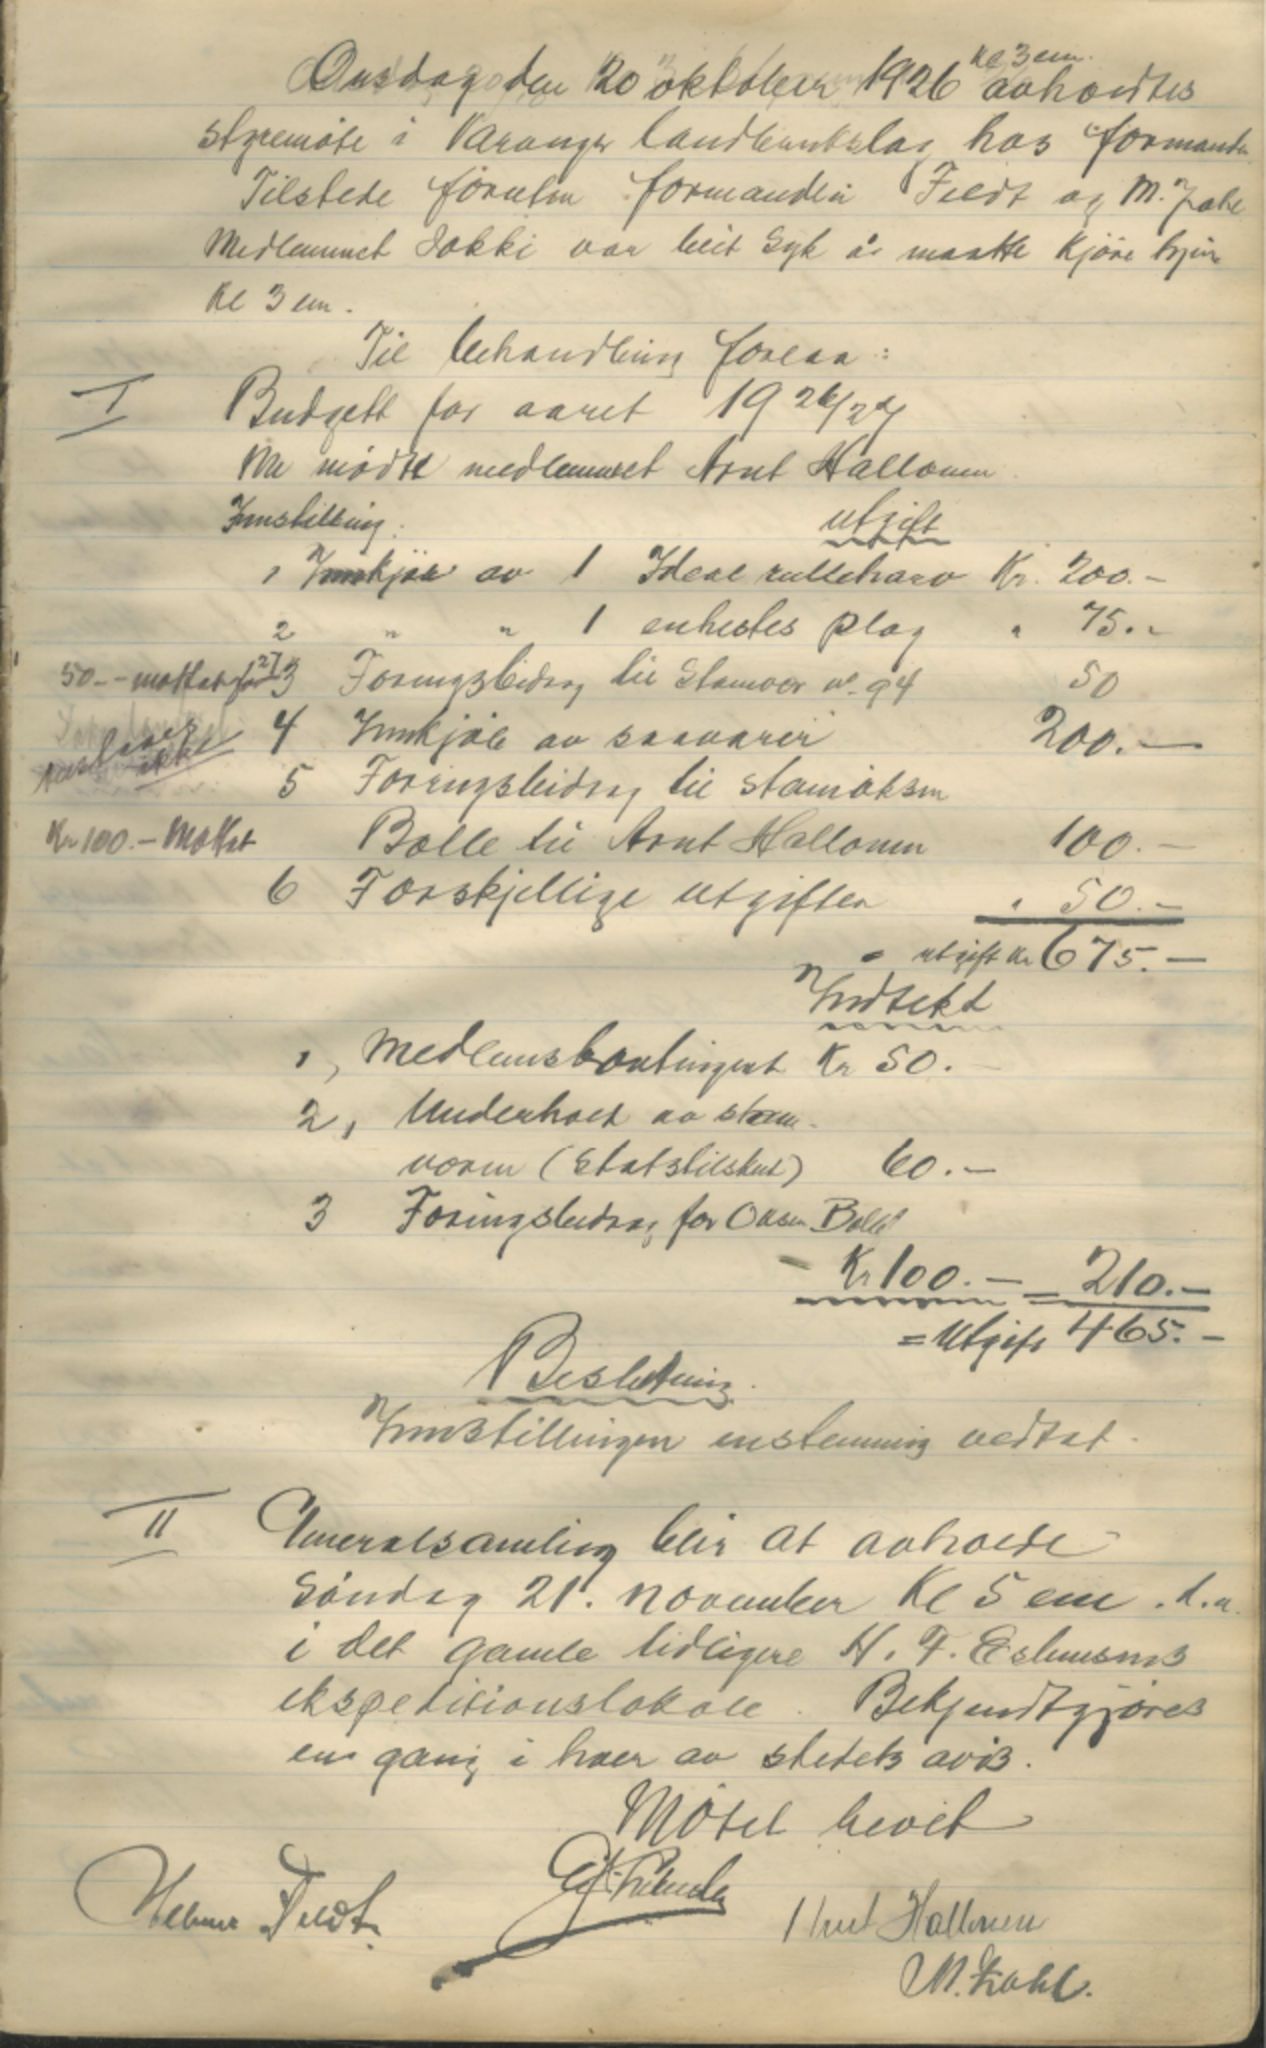 Kl 3 em.
Onsdag den 20 oktober 1926 avholdtes
styremøte i Varanger landbrukslag hos formanden
Tilstede foruten formanden Feldt og M. Zahl
Medlemmet Jokki var blit syk å maatte kjøre hjem
Kl 3 em.
Til behandling forelaa:
I Budgett for aaret 1926/27
Nu mødte medlemmet Arnt Hallonen
Innstilling. utgift
1 Innkjøb av 1 Ideal rulleharv Kr. 200.-
2 " " 1 enhestes plog " 75.-
50.- mottat for 27 3 Foringsbidrag til Stamvær nr. 94 50
4 Innkjøb av saavarer 200.-
ikke
5 Foringsbidrag til stamoksen
Kr 100.- Mottat Bolle til Arnt Hallonen 100.-
6 Forskjellige utgifter " 50.-
= utgift Kr 675.-
Indtekt
1, Medlemskontingent Kr 50.-
2, Underhold av stam-
væren (Statstilskud) 60.-
3 Foringsbidrag for Oksen Bolle
Kr 100.- = 210.-
= Utgift 465.-
Beslutning.
Innstillingen enstemmig vedtat.
II Generalsamling blir at avholde
Søndag 21. november Kl 5 em. d.a.
i det gamle tidligere H. F. Esbensens
ekspeditionslokale. Bekjendtgjøres
en gang i hver av stedets avis.
Møtet hevet
Helmer Feldt Arnt Hallonen
M. Zahl.